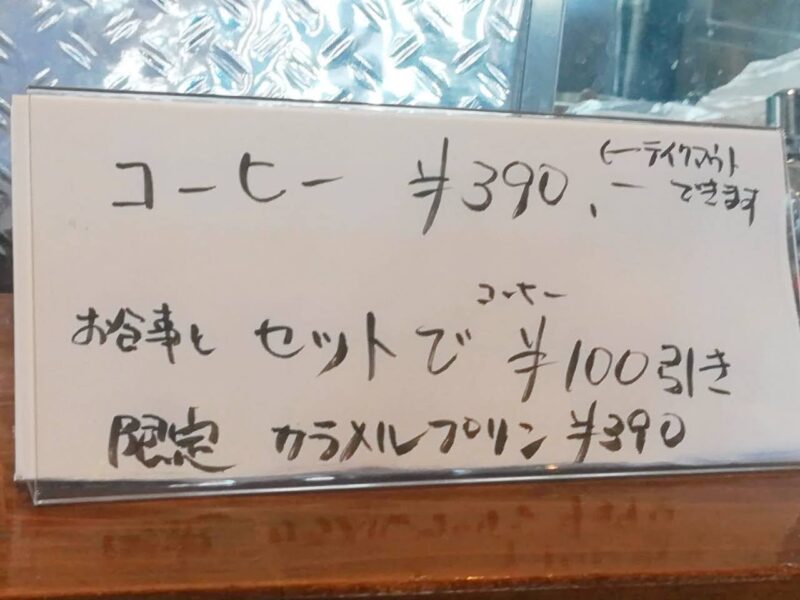 コーヒー ¥390.- ←テイクアウト
できます
コーヒー
お食事と セットで ¥100引き
限定 カラメルプリン ¥390